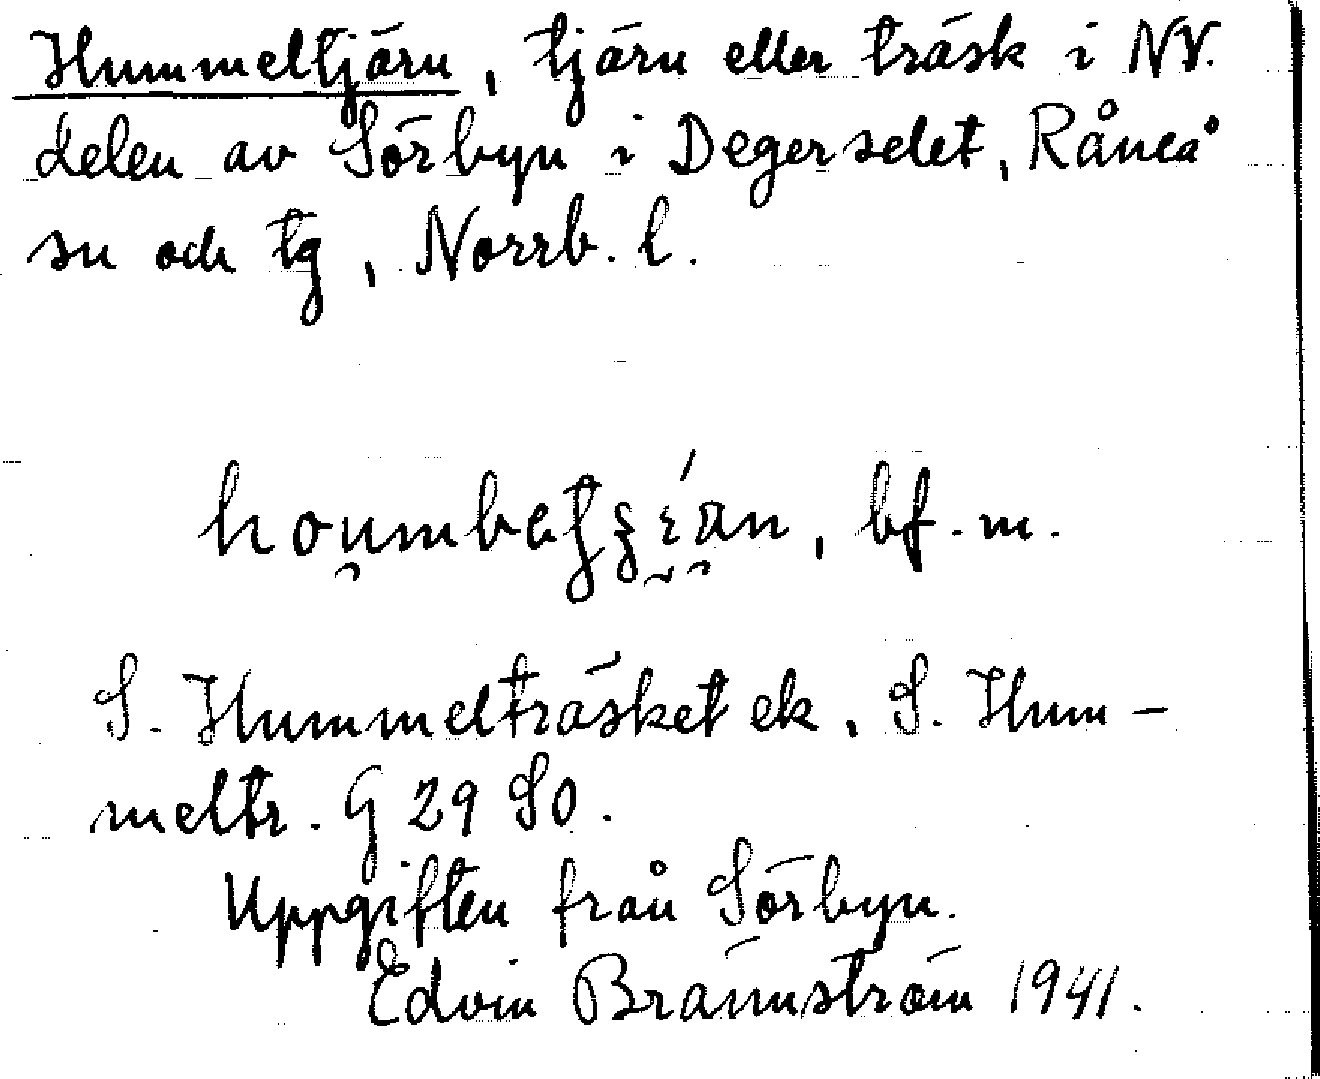 Hummeltjärn, tjärn eller träsk i NV.
delen av Sörbyn i Degerselet, Råneå
sn och tg, Norrb. l.
bf. m.
S. Hummelträsket ek. S. Hum-
meltr. G 29 SO.
Uppgiften från Sörbyn.
Edvin Brännström 1941.